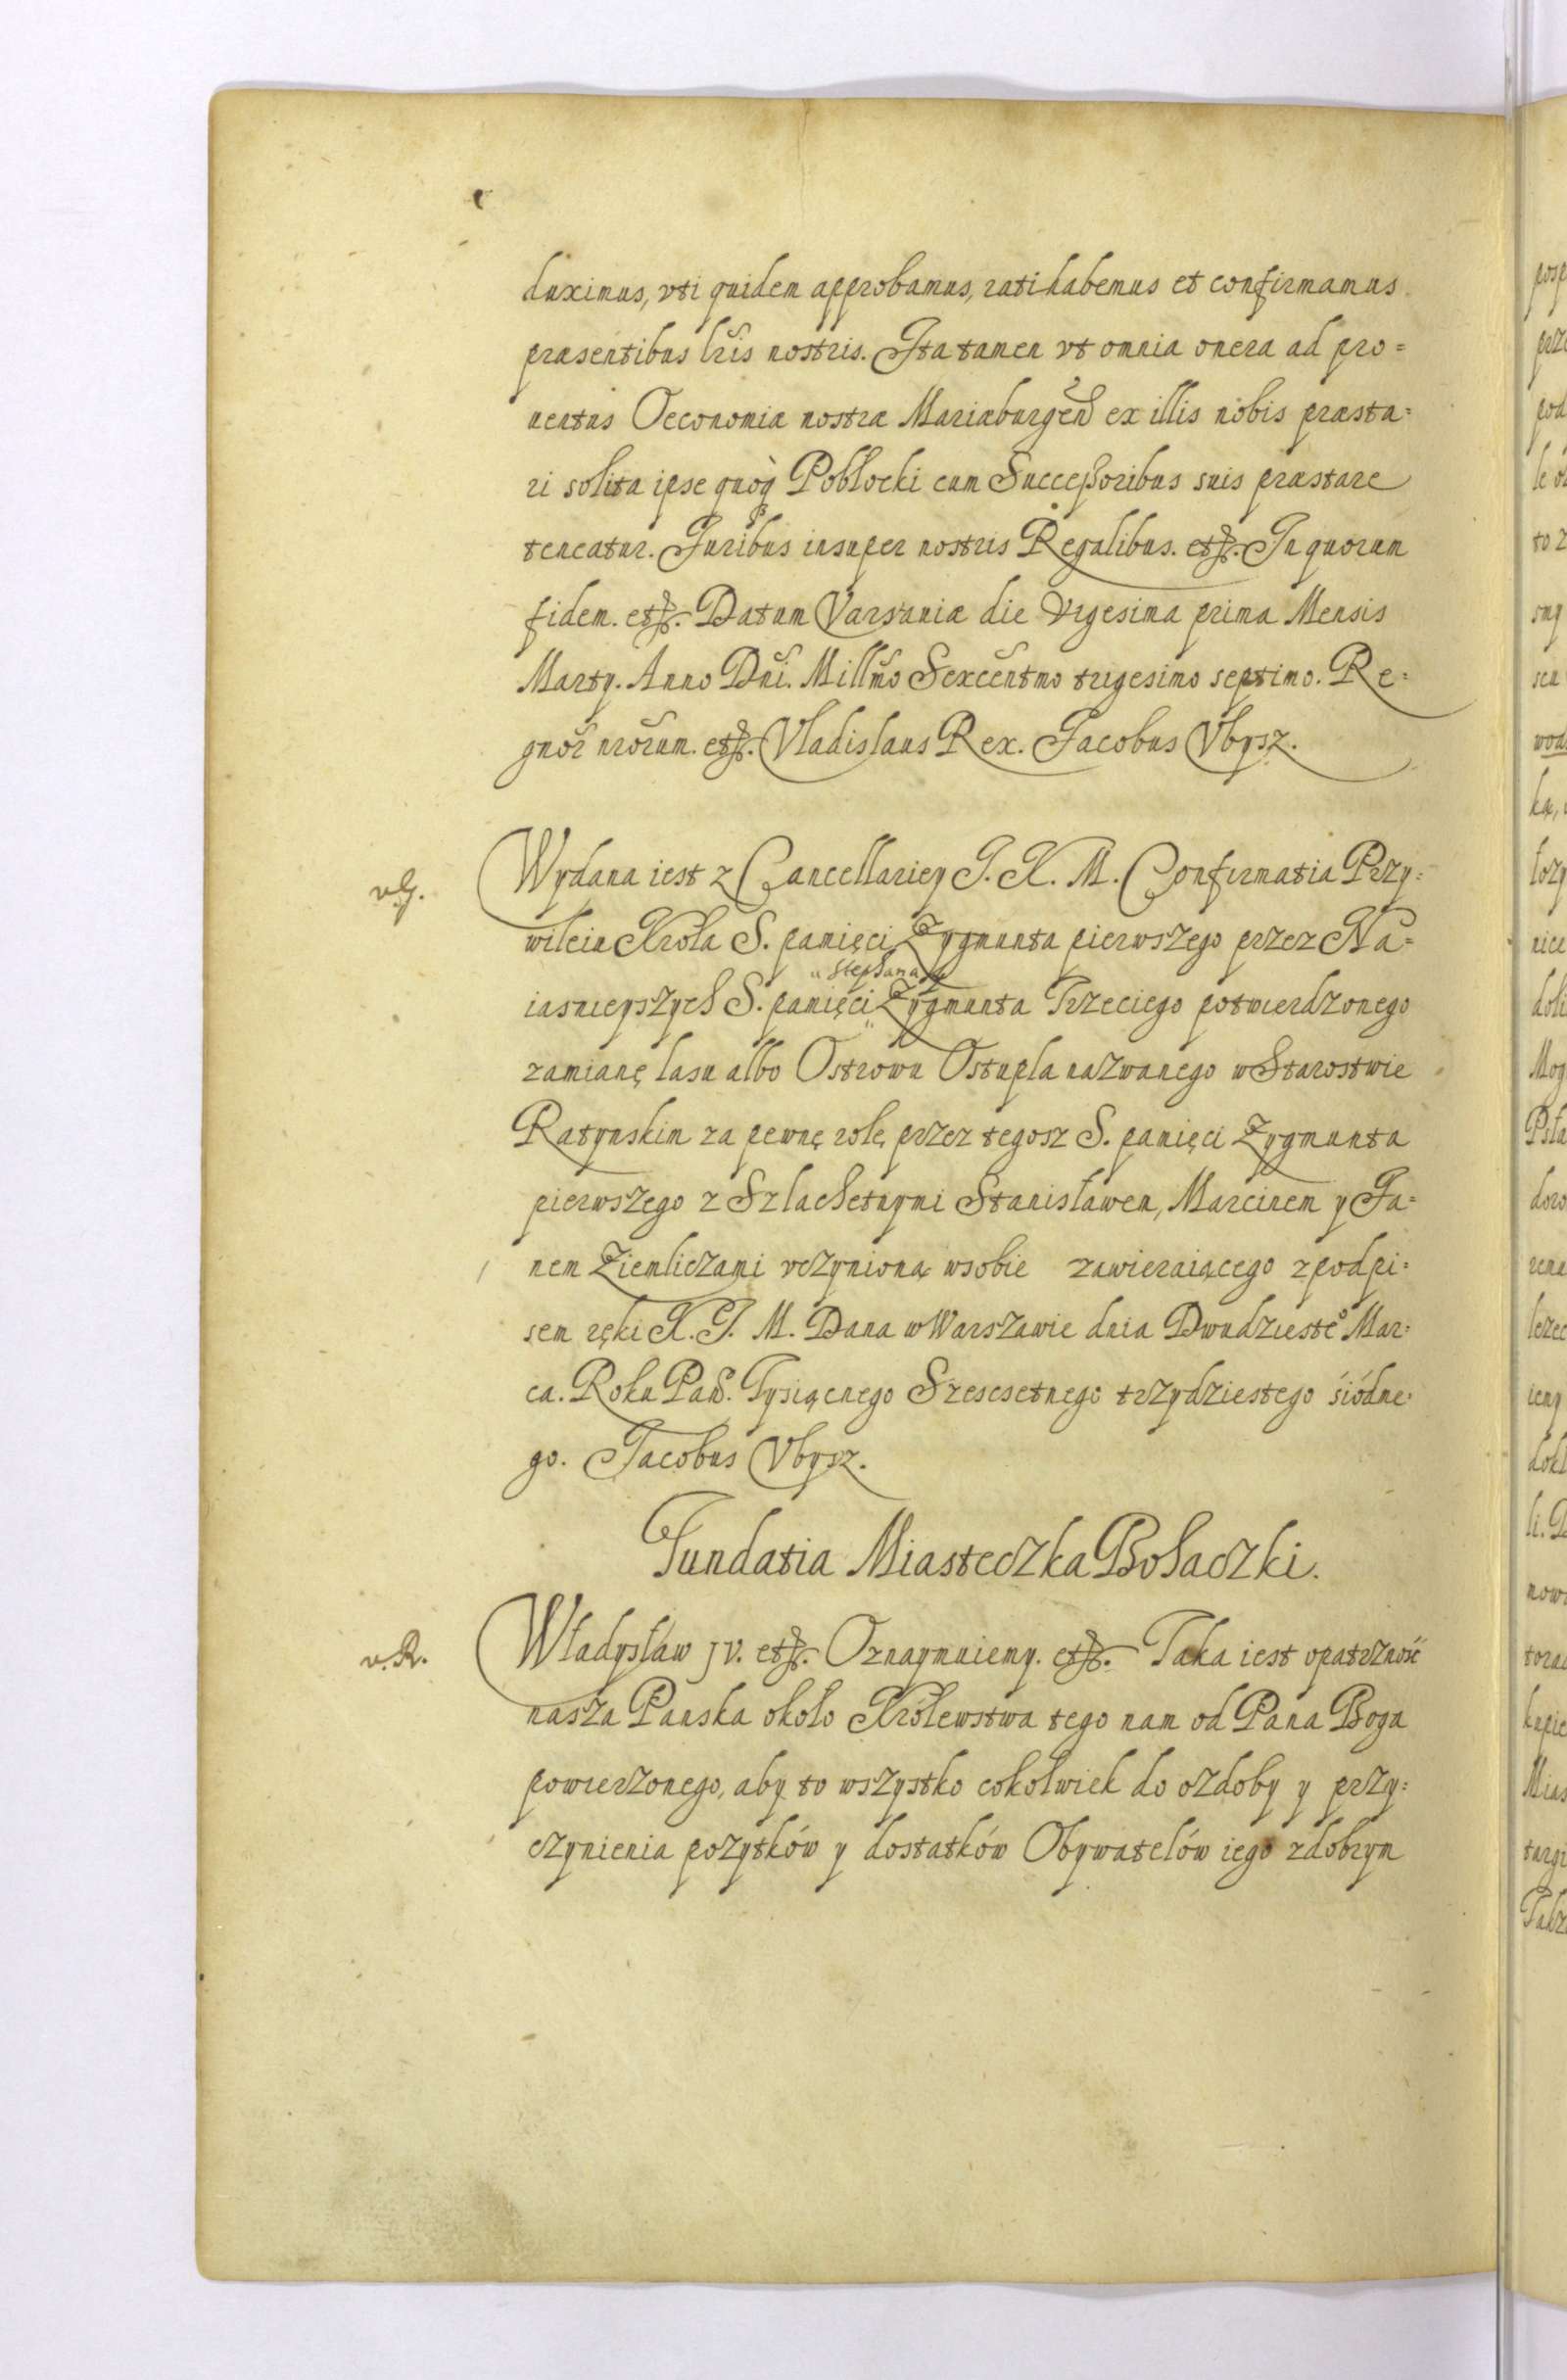 duximus, vti quidem approbamus, ratihabemus et confirmamus
præsentibus lr̃is nostris. Ita tamen vt omnia onera ad pro=
uentus Oeconomiæ nostræ Mariæburgeñ ex illis nobis præsta=
ri solita ipse quoq̀ Pobłocki cum Successoribus suis præstare
teneatur. Juribus insuper nostris Regalibus. etc. In quorum
fidem. etc. Datum Varsauiæ die Vigesima prima Mensis
Marty. Anno Dñi. Millm̃o Sexcẽntmo trigesimo septimo. Re=
gnor̃ nrõrum. etc. Vladislaus Rex. Jacobus Vbysz.
v.G.
Wydana iest z Cancellariey J. K. M. Confirmatia Przy=
wileiu Krola S. pamięci Zygmunta pierwszego przez Na=
" Stephana y
iasnieyszych S. pamięci " Zygmunta Trzeciego potwierdzonego
zamianę lasu albo Ostrowu Ostupla nazwanego w Starostwie
Ratynskim za pewnę rolę, przez tegosz S. pamięci Zygmunta
pierwszego z Szlachetnymi Stanisławem, Marcinem y Ja=
nem Ziemliczami vczynioną wsobie zawieraiącego zpodpi=
sem ręki K. J. M. Dana w Warszawie dnia Dwudzieste° Mar=
ca. Roku Pań. Tysiącnego Szescsetnego trzydziestego siódme=
go. Jacobus Vbysz.
Fundatia Miasteczka Bohaczki.
v.R.
Władysław JV. etc. Oznaymuiemy. etc. Taka iest opatrzność
nasza Panska około Królewstwa tego nam od Pana Boga
powierzonego, aby to wszystko cokolwiek do ozdoby y przy=
czynienia pozytków y dostatków Obywatelów iego zdobrym